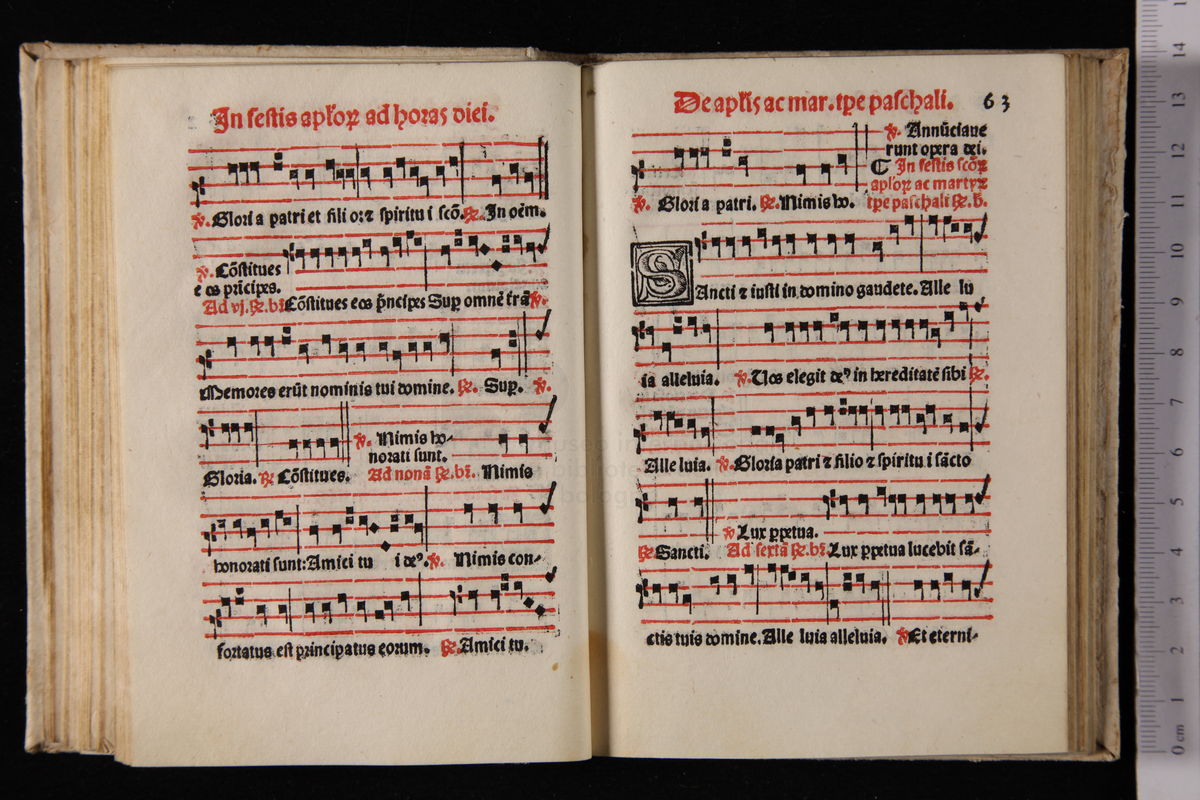 In festis apl'oꝝ ad horas diei.
℣. Glori a patri et fili o:⁊ spiritu i scō. ℟. In oēm.
℣. Cōstitues
e os prīcipes.
Ad vj. ℟. bī Cōstitues eos p̄ncipes Sup omnē trā ℣.
Memores erūt nominis tui domine. ℟. Sup. ℣.
℣. Nimis ho-
norati sunt.
Gloria. ℟ Cōstitues. Ad nonā ℟. bī. Nimis
honorati sunt: Amici tu i deꝰ. ℣. Nimis con-
fortatus est principatus eorum. ℟. Amici tu.
De aplīs ac mar. tpe paschali. 63
℣. Annūciaue
runt opera dei.
In festis scōꝝ
apl'oꝝ ac martyꝝ
℣. Glori a patri. ℟. Nimis ho. tpe paschali ℟. b.
SAncti ⁊ iusti in domino gaudete. Alle lu
ia alleluia. ℣. Uos elegit deꝰ in hereditatē sibi ℟.
Alle luia. ℣. Gloria patri ⁊ filio ⁊ spiritu i sācto
℣ Lux ꝑpetua.
℟ Sancti. Ad sextā ℟. bī. Lux ꝑpetua lucebit sā-
ctis tuis domine. Alle luia alleluia. ℣ Et eterni-
14
13
12
11
10
9
8
7
6
5
4
3
2
1
0 cm